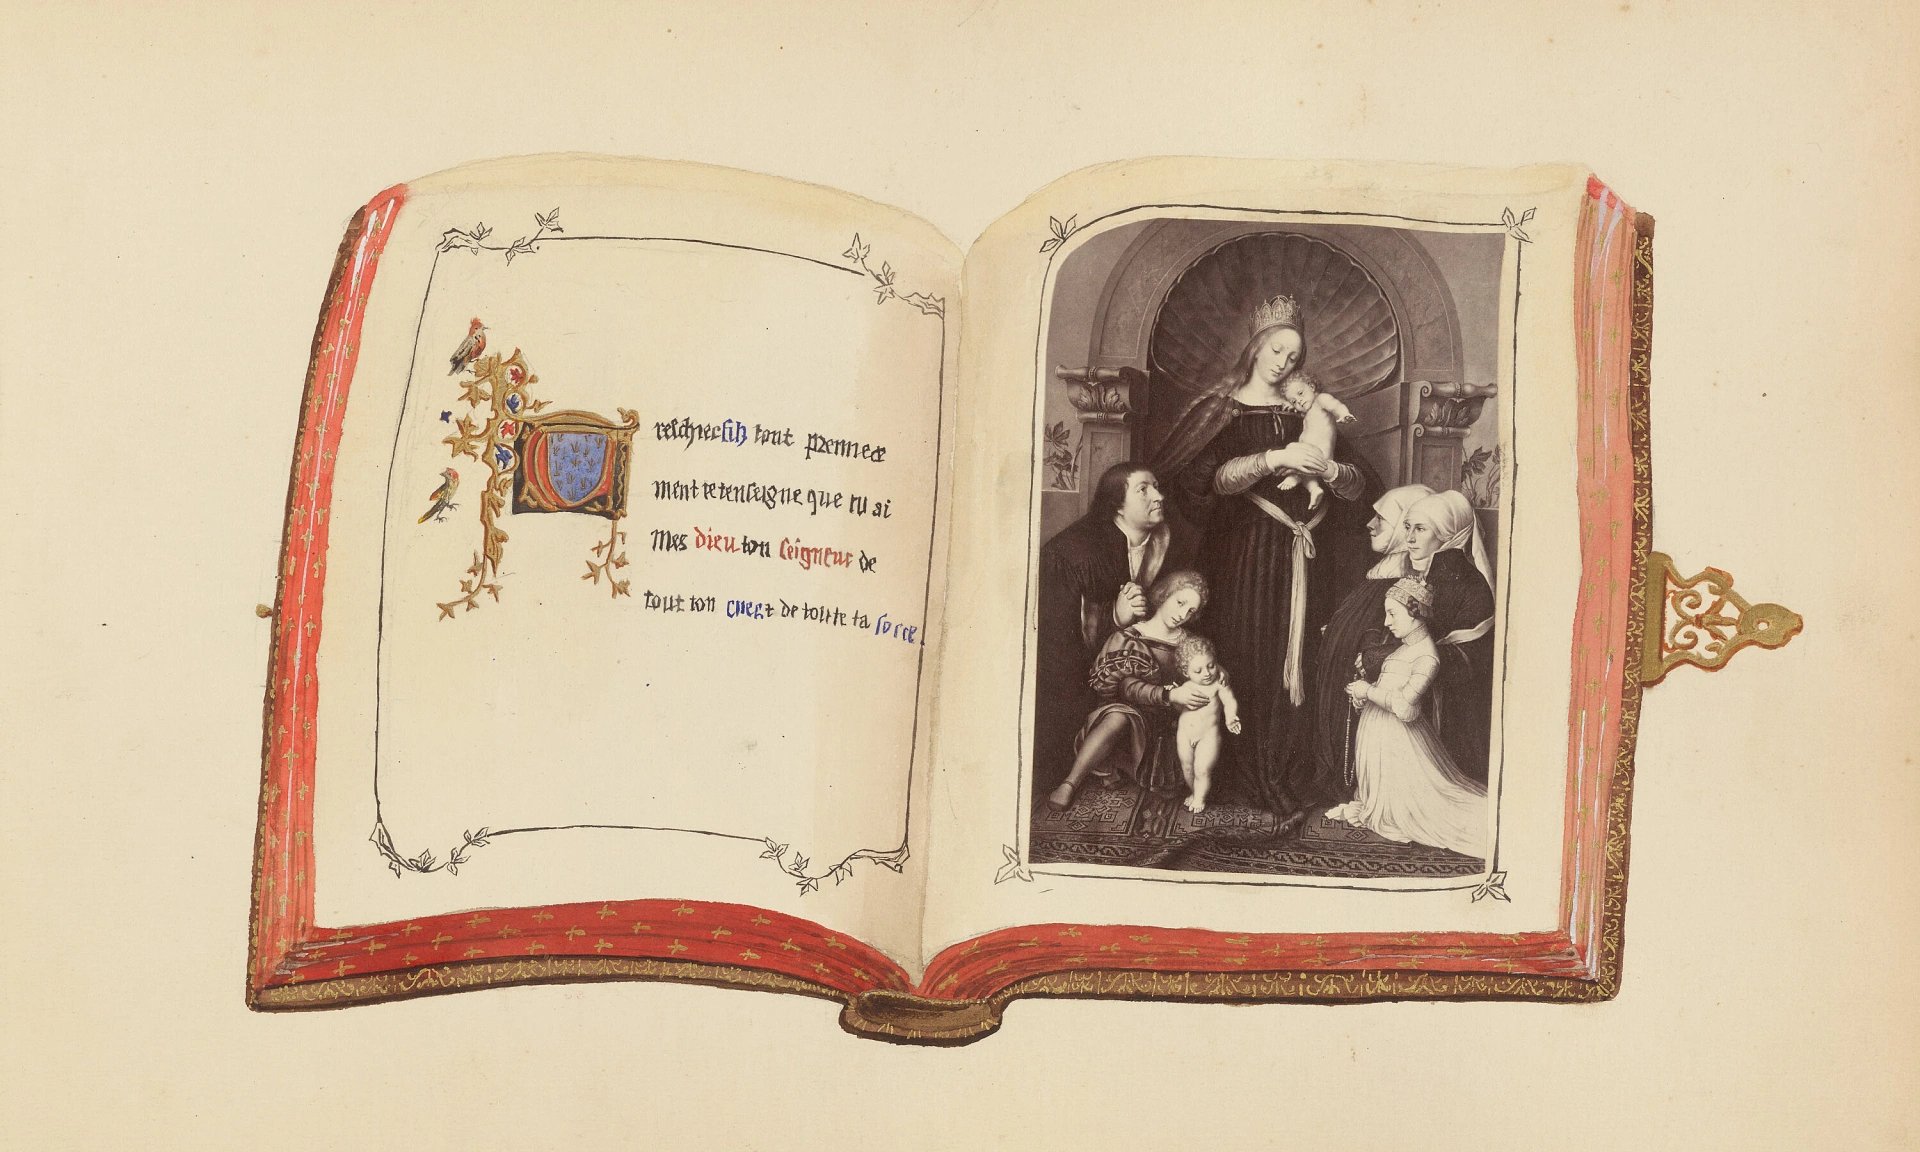 Treschier filz tout premiere
ment te tenseigne que tu ai
mes dieu ton seigneur de
tout ton cuer & de toute ta force.